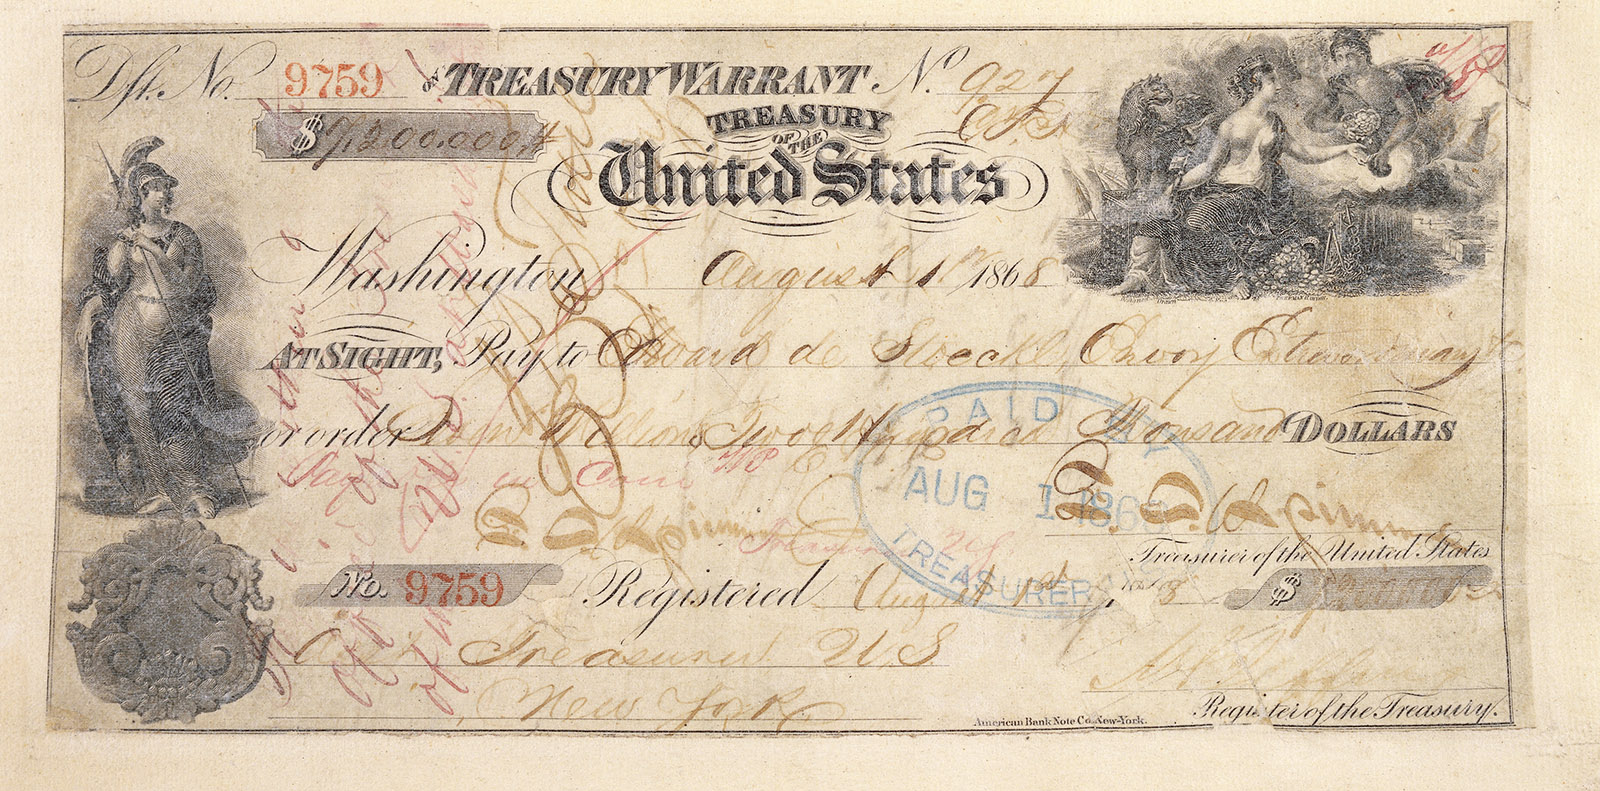 Dft. No. 9759 on TREASURY WARRANT No. 927
$ 7,200,000.
TREASURY
OF THE
United States
Washington August 1st 1868
AT SIGHT, Pay to Edward de Stoeckl, Envoy Extraordinary &c
or order Seven Million Two Hundred Thousand DOLLARS
Pay this in Coin
PAID BY
AUG 1 1868
TREASURER
F. E. Spinner
Treasurer U.S.
F. E. Spinner
Treasurer of the United States
No. 9759 Registered August 1st, 1868 $ 7200000
Asst. Treasurer U.S
New York
American Bank Note Co. New-York.
Register of the Treasury.